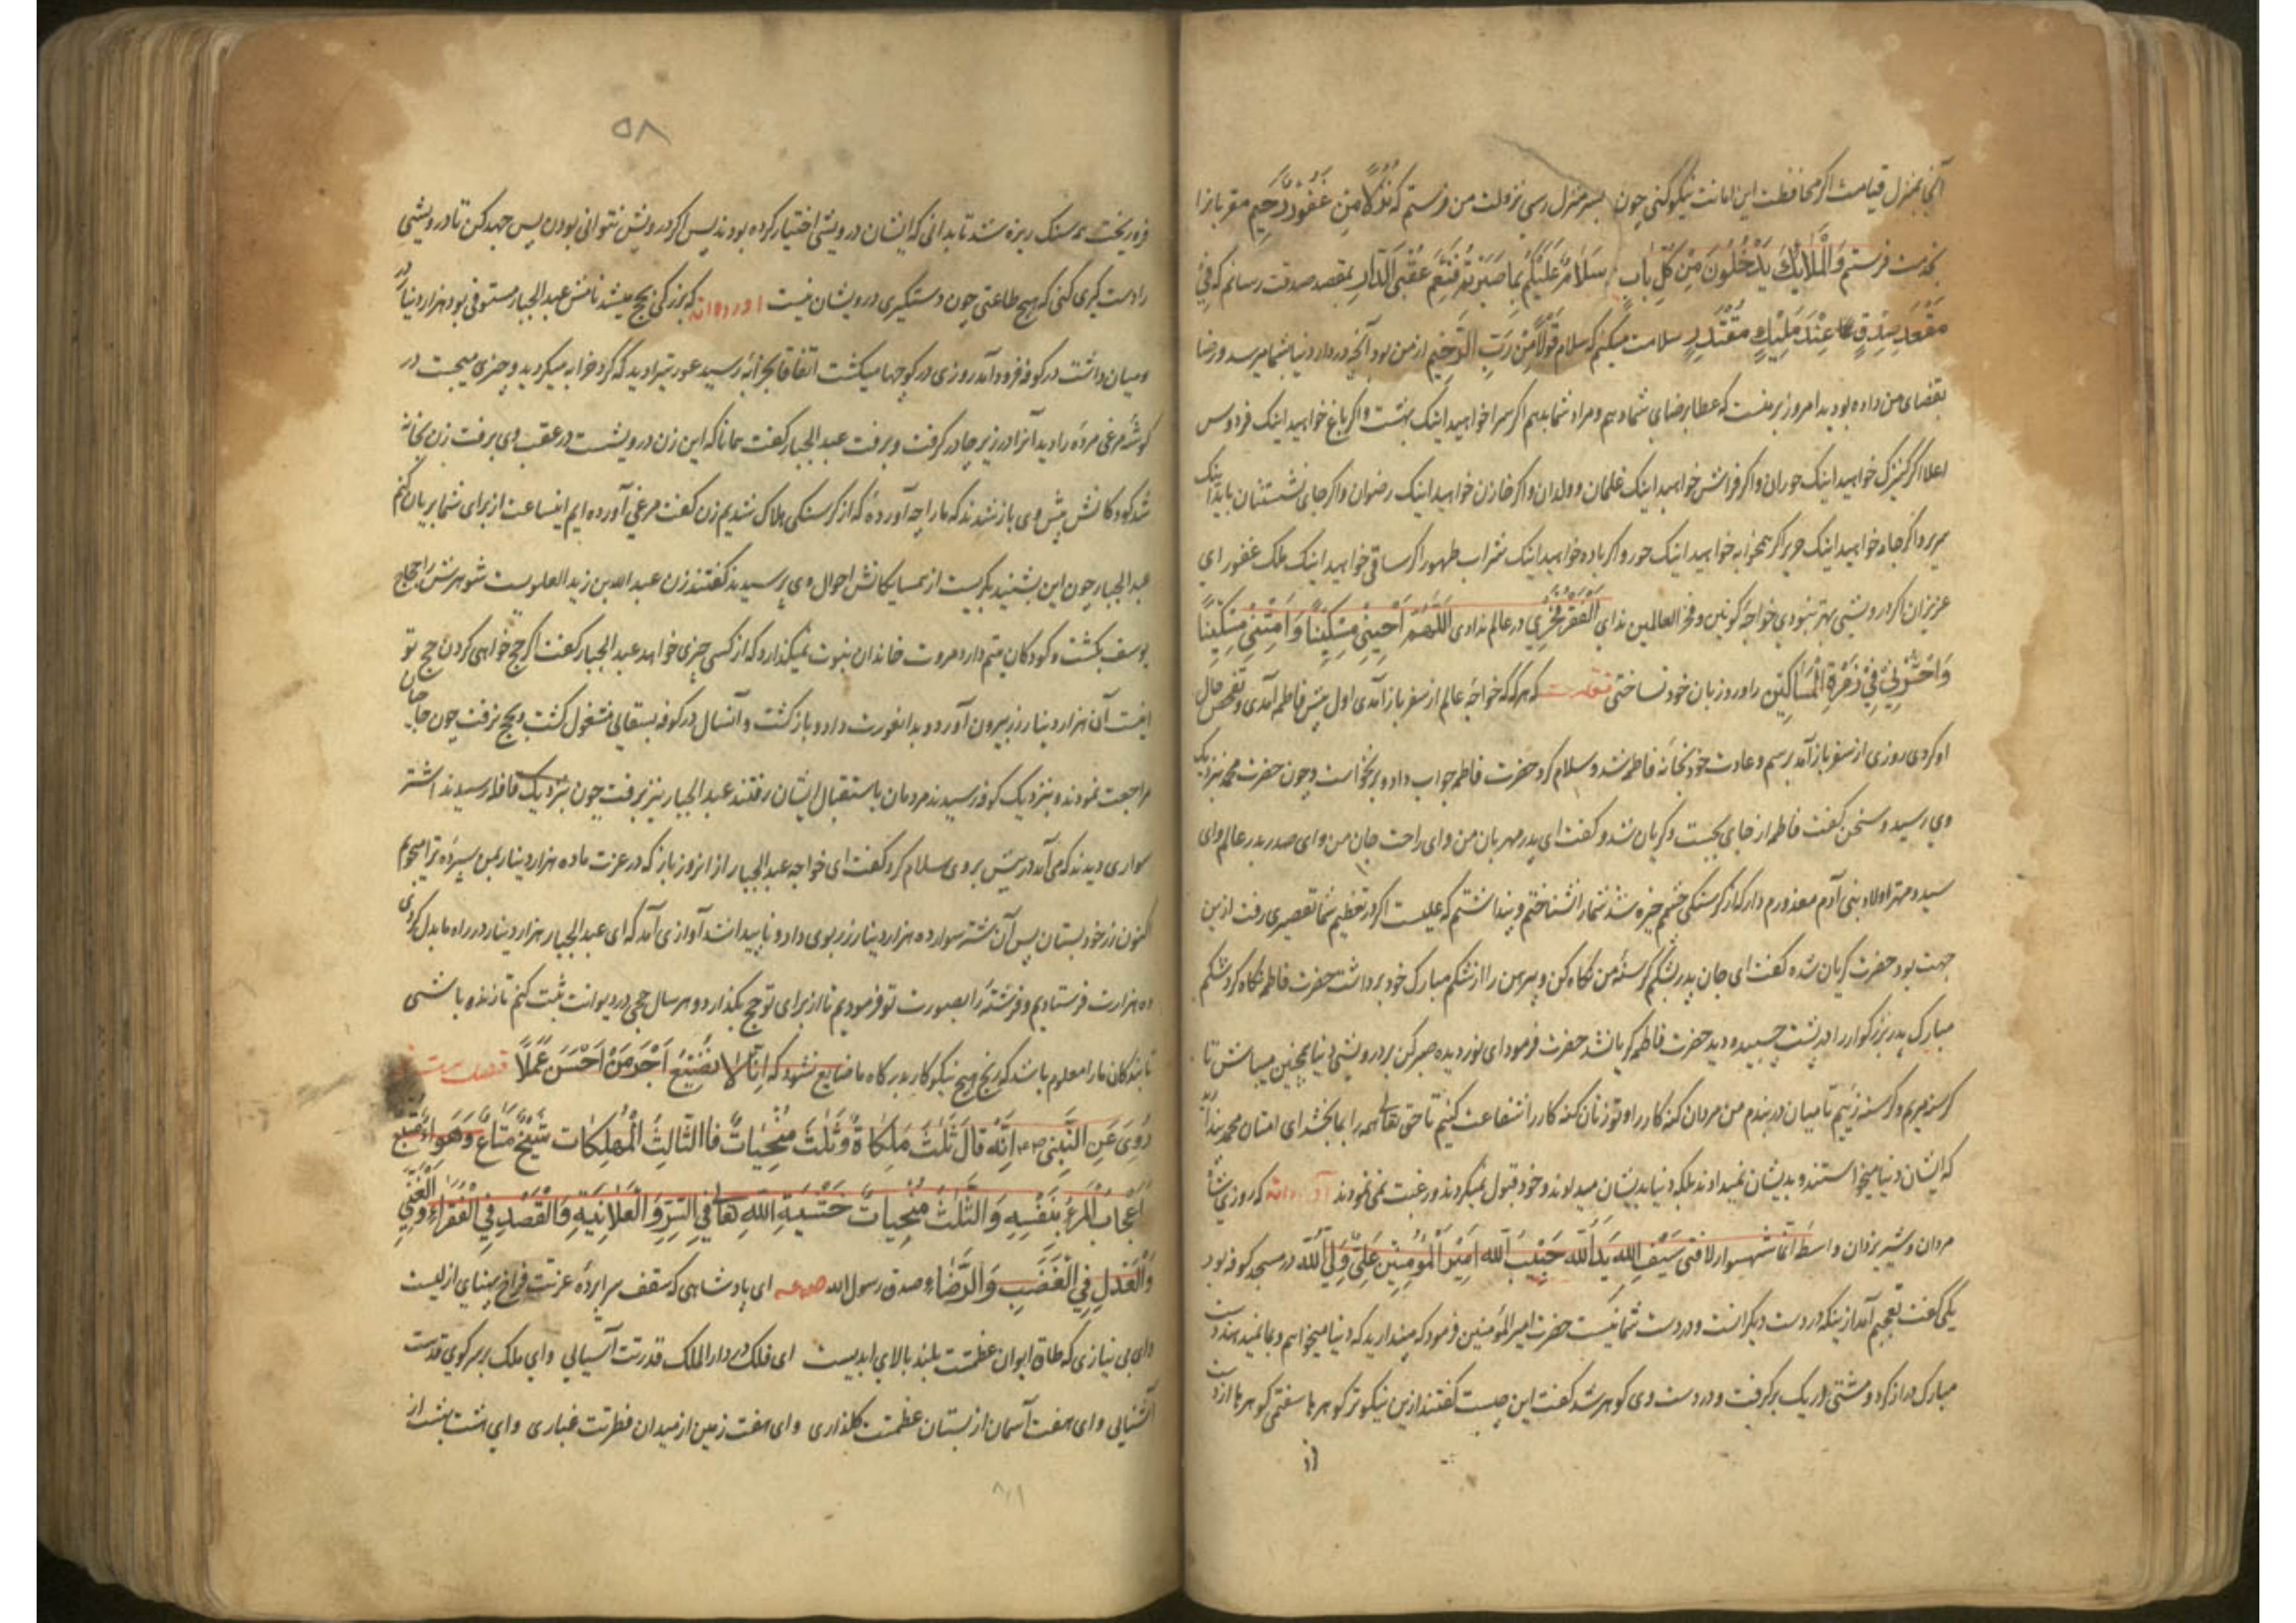 آنجا بمنزل قیامت اگر محافظت این امانت نیکو کنی چون بسر منزل رسی نزولت من فرستم که نُزُلًا مِن غَفُورٍ رَحِیم مقربانرا
بخدمت فرستم وَالْمَلَائِکَةُ یَدْخُلُونَ مِن کُلِّ بابٍ سَلَامٌ عَلَیْکُم بِما صَبَرْتُم فَنِعْمَ عُقْبَی الدّارِ بمقصد صدقت رسانم که فِی
مَقْعَدِ صِدْقٍ عِنْدَ مَلِیکٍ مُقْتَدِرٍ سلامت میکنم که سلام قَوْلًا مِنْ رَبِّ الرَّحِیم از من بود آنچه در دار دنیا بشما میرسد و رضا
بقضای من داده بودید امروز بر منست که عطا برضای شما دهم و مراد شما بدهم اگر سرا خواهید اینک بهشت و اگر باغ خواهید اینک فردوس
اعلا اگر کنیزک خواهید اینک حوران و اگر فراش خواهید اینک غلمان و ولدان و اگر خازن خواهید اینک رضوان و اگر جای نشستتان باید اینک
سریر و اگر جامه خواهید اینک حریر اگر همخوابه خواهید اینک حور و اگر باده خواهید اینک شراب طهور اگر ساقی خواهید اینک ملک غفور ای
عزیزان اگر درویشی بهتر نبودی خواجهٔ کونین و فخر العالمین ندای اَلْفَقْرُ فَخْرِی در عالم ندادی اَللّهُمَّ اَحْیِنِی مِسْکِیناً وَ اَمِتْنِی مِسْکِیناً
وَاحْشُرْنِی فِی زُمْرَةِ الْمَسَاکِین را ورد زبان خود نساختی نقلست که هرگه که خواجهٔ عالم از سفر باز آمدی اول پیش فاطمه آمدی و تفحص حال
او کردی روزی از سفر باز آمد برسم و عادت خود بخانهٔ فاطمه شد و سلام کرد حضرت فاطمه جواب داد و برنخواست و چون حضرت محمد بنزدیک
وی رسید و سخن گفت فاطمه از جای بجست و گریان شد و گفت ای پدر مهربان من و ای راحت جان من و ای صدر بدر عالم و ای
سید و مهتر اولاد بنی آدم معذورم دار که از گرسنگی چشمم خیره شد شما را نشناختم و پنداشتم که علیست اگر در تعظیم شما تقصیری رفت ازین
جهت بود حضرت گریان شده گفت ای جان پدر بشکم گرسنهٔ من نگاه کن و پیرهن را از شکم مبارک خود برداشت حضرت فاطمه نگاه کرد شکم
مبارک پدر بزرگوار را در پشت چسبیده دید حضرت فاطمه گریان شد حضرت فرمود ای نور دیده صبر کن بر درویشی دنیا همچنین میباش تا
گرسنه میریم و گرسنه زییم تا میان در بندم من مردان گنه کار را و تو زنان گنه کار را شفاعت کنیم تا حق تعالی همه را بما بخشد ای امتان محمد پندارید
که ایشان دنیا میخواستند و بدیشان نمیدادند بلکه دنیا بدیشان میدادند و خود قبول نمیکردند و رغبت نمی نمودند آورده‌اند که روزی شاه
مردان و شیر یزدان واسطهٔ انّما شهسوار لافتی سَیْفِ اللّه یَدُ اللّه حَبِیبُ اللّه اَمِیرُ الْمُؤْمِنِینَ عَلِیٌّ وَلِیُّ اللّه در مسجد کوفه بود
یکی گفت تعجبم آمد ازینکه در دست دیگرانست و در دست شما نیست حضرت امیرالمؤمنین فرمود که پندارید که دنیا میخواهیم و بما نمیدهند دست
مبارک دراز کرد و مشتی ریک برگرفت و در دست وی گوهر شد گفت این چیست گفتند ازین نیکوتر گوهرها سفتمی گوهرها از دست
۵۸
فرو ریخت همه سنگ ریزه شد تا بدانی که ایشان درویشی اختیار کرده بودند پس اگر درویش نتوانی بودن پس جهد کن تا درویشی
را دست گیری کنی که هیچ طاعتی چون دستگیری درویشان نیست آورده‌اند که بزرگی بحج میشد نامش عبد الجبار مستوفی بود هزار دینار در
میان داشت در کوفه فرود آمد روزی در کوچها میگشت اتفاقا بخرابه رسید عورتی را دید که گرد خرابه میگردید و چیزی میجست در
گوشه مرغی مرده را دید آنرا در زیر چادر گرفت و برفت عبد الجبار گفت همانا که این زن درویشست در عقب وی برفت زن بخانه
شد کودکانش پیش وی باز شدند که ما را چه آوردهٔ که از گرسنگی هلاک شدیم زن گفت مرغی آورده ایم اینساعت از برای شما بریان کنم
عبد الجبار چون این بشنید بگریست از همسایگانش احوال وی پرسید گفتند زن عبد الله بن زید العلویست شوهرش را حجاج
یوسف بکشت و کودکان یتیم دارد مروت خاندان نبوت نمیگذارد که از کسی چیزی خواهد عبد الجبار گفت اگر حج خواهی کردن حج تو
اینست آن هزار دینار زر بیرون آورد و بدانعورت داد و باز گشت و آنسال در کوفه بسقائی مشغول گشت و بحج نرفت چون حاجیان
مراجعت نمودند و بنزدیک کوفه رسیدند مردمان باستقبال ایشان رفتند عبد الجبار نیز برفت چون بنزدیک قافله رسیدند اشتر
سواری دیدند که می آمد در پیش بروی سلام کرد و گفت ای خواجه عبد الجبار از انروز باز که در عزت ما ده هزار دینار بمن سپردهٔ ترا میجویم
اکنون زر خود بستان پس آن شتر سوار ده هزار دینار زر بوی داد و ناپیدا شد آوازی آمد که ای عبد الجبار هزار دینار در راه ما بدل کردی
ده هزارت فرستادیم و فرشتهٔ را بصورت تو فرمودیم تا از برای تو حج بگذارد و هر سال حجی در دیوانت ثبت کنم تا زنده باشی
تا بندگان ما را معلوم باشد که رنج هیچ نیکوکار بدرگاه ما ضایع نشود که اِنّا لا نُضِیعُ اَجْرَ مَنْ اَحْسَنَ عَمَلًا
رُوِیَ عَنِ النَّبِیّ اِنَّهُ قالَ ثَلٰثَ مَلِکاةٌ وَ ثَلٰثَ مُنْجِیاتٌ فَاالثّالِثُ الْمُهْلِکات شُحٌّ مُتَاعٌ وَهَواءٌ مُتَّبَعٌ
اِعْجابُ الْمَرْءِ بِنَفْسِهِ وَالثَّلٰثُ مُنْجِیاتٌ خَشْیَةِ اللّهِ تعالی فِی السِّرِّ وَالْعَلانِیَةِ وَالْقَصْدِ فِی الْفَقْراءِ وَالْغَنِیِّ
وَالْعَدْلِ فِی الْغَضَبِ وَالرِّضاءِ صدق رسول الله ای پادشاهی که سقف سراپردهٔ عزتت فراخ پهنای ازلیست
وای بی نیازی که طاق ایوان عظمتت بلند بالای ابدیست ای فلک در دار الملک قدرتت آسیائی وای ملک بر سر کوی قدست
آشنیائی وای هفت آسمان از بستان عظمتت گلذاری وای هفت زمین از میدان فطرتت غباری وای هشت بهشت از